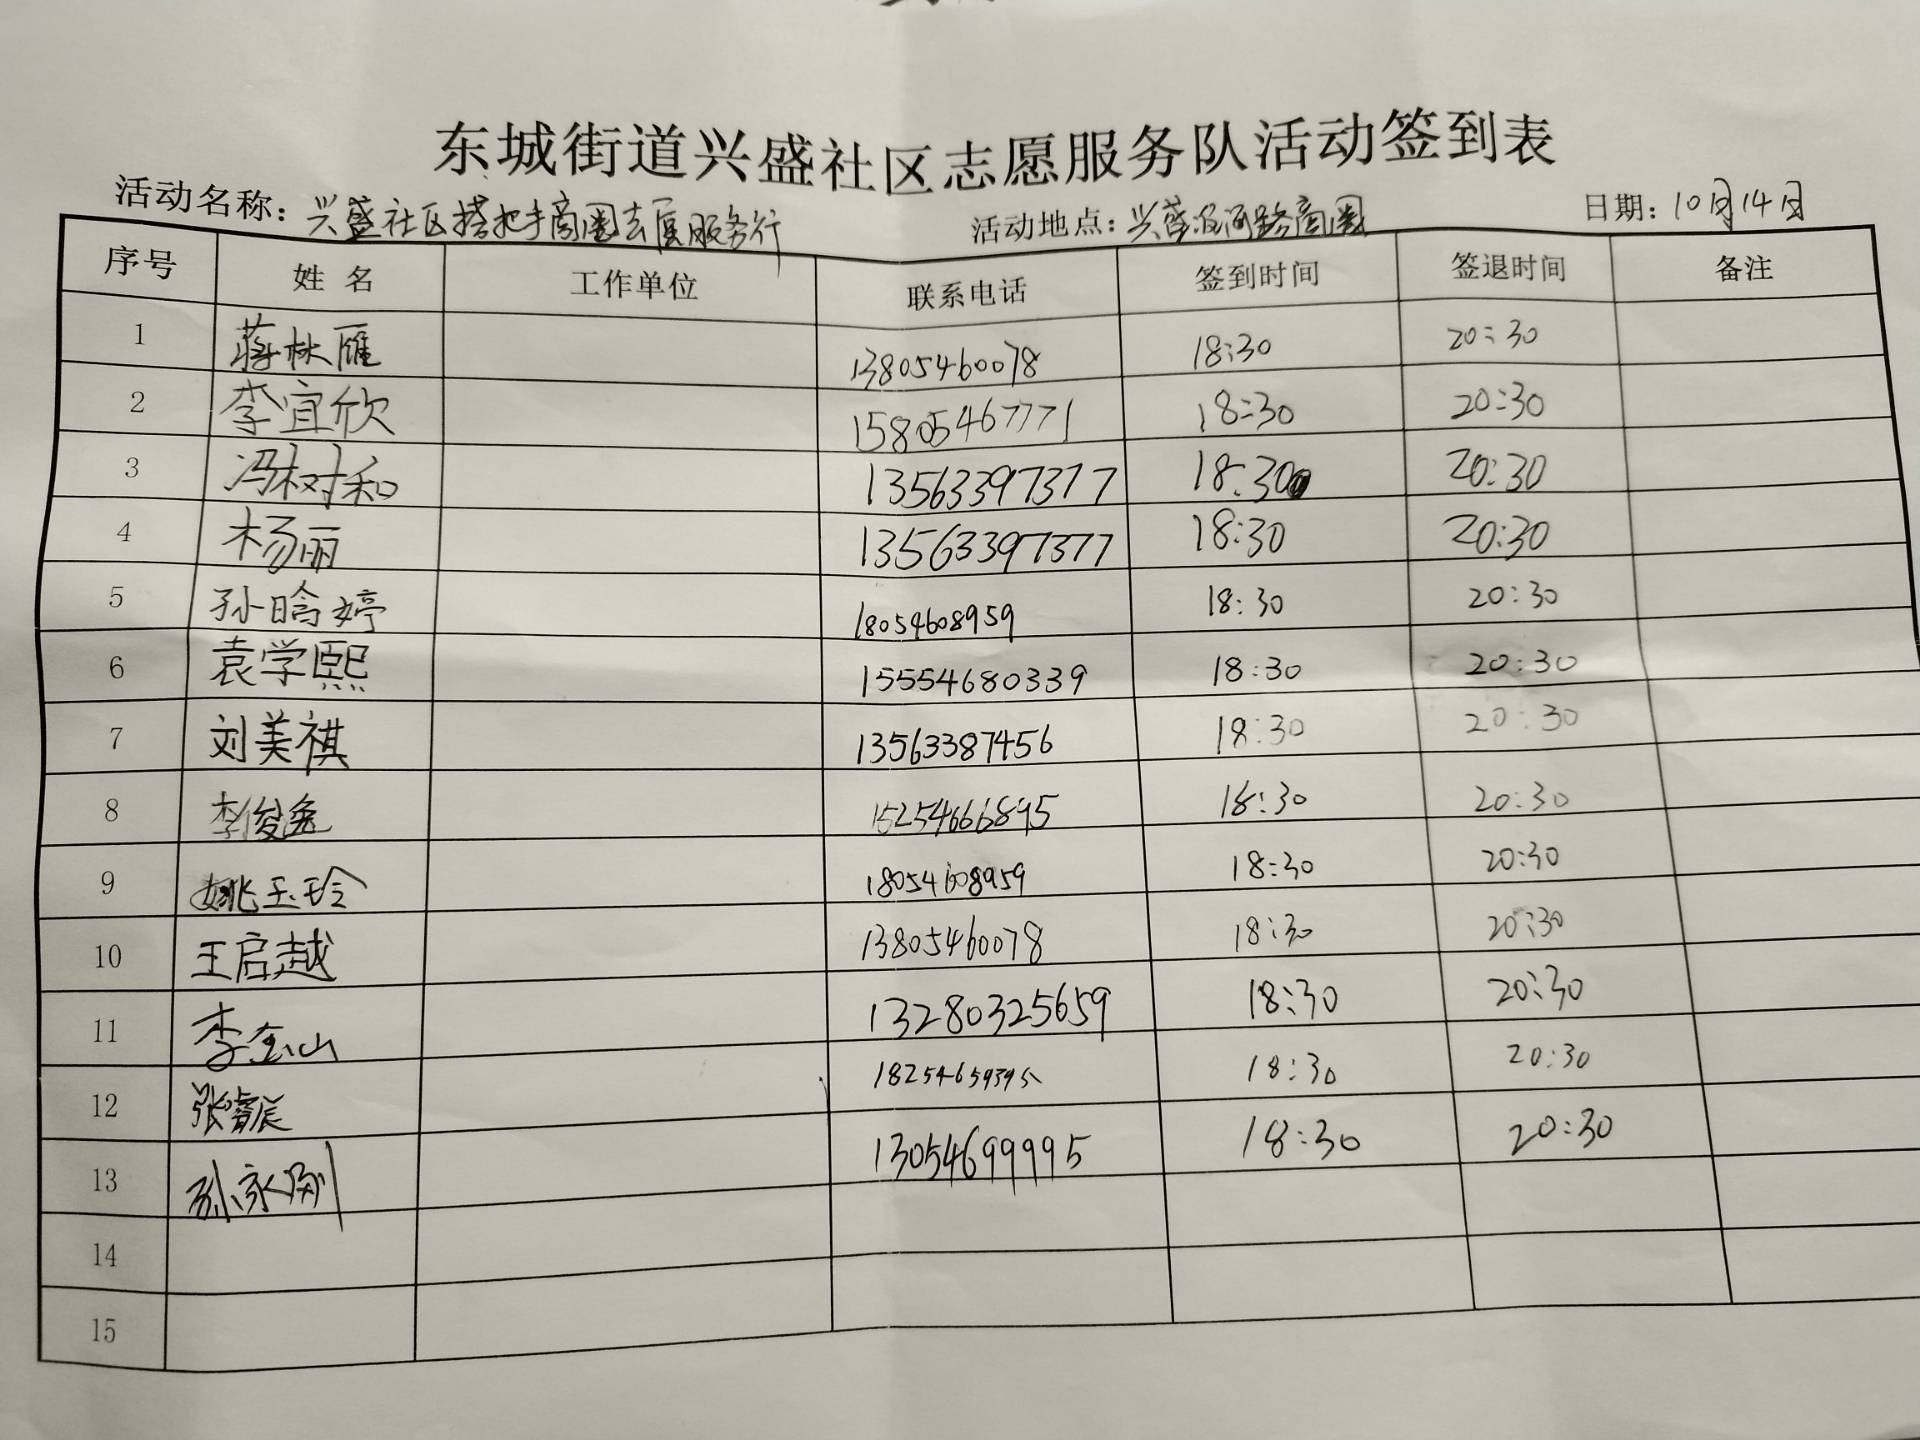 东城街道兴盛社区志愿服务队活动签到表
活动名称：兴盛社区搭把手商圈志愿服务行 活动地点：兴盛 河路商圈 日期：10月14日
序号 姓名 工作单位 联系电话 签到时间 签退时间 备注
1 蒋林雁 13805460078 18:30 20:30
2 李宜欣 15805467771 18:30 20:30
3 冯树和 13563397377 18:30 20:30
4 杨丽 13563397377 18:30 20:30
5 孙晗婷 18054608959 18:30 20:30
6 袁学熙 15554680339 18:30 20:30
7 刘美祺 13563387456 18:30 20:30
8 李俊逸 15254666895 18:30 20:30
9 姚玉玲 18054608959 18:30 20:30
10 王启越 13805460078 18:30 20:30
11 李金山 13280325659 18:30 20:30
12 张睿宸 18:30 20:30
13 孙永刚 13054699995 18:30 20:30
14
15